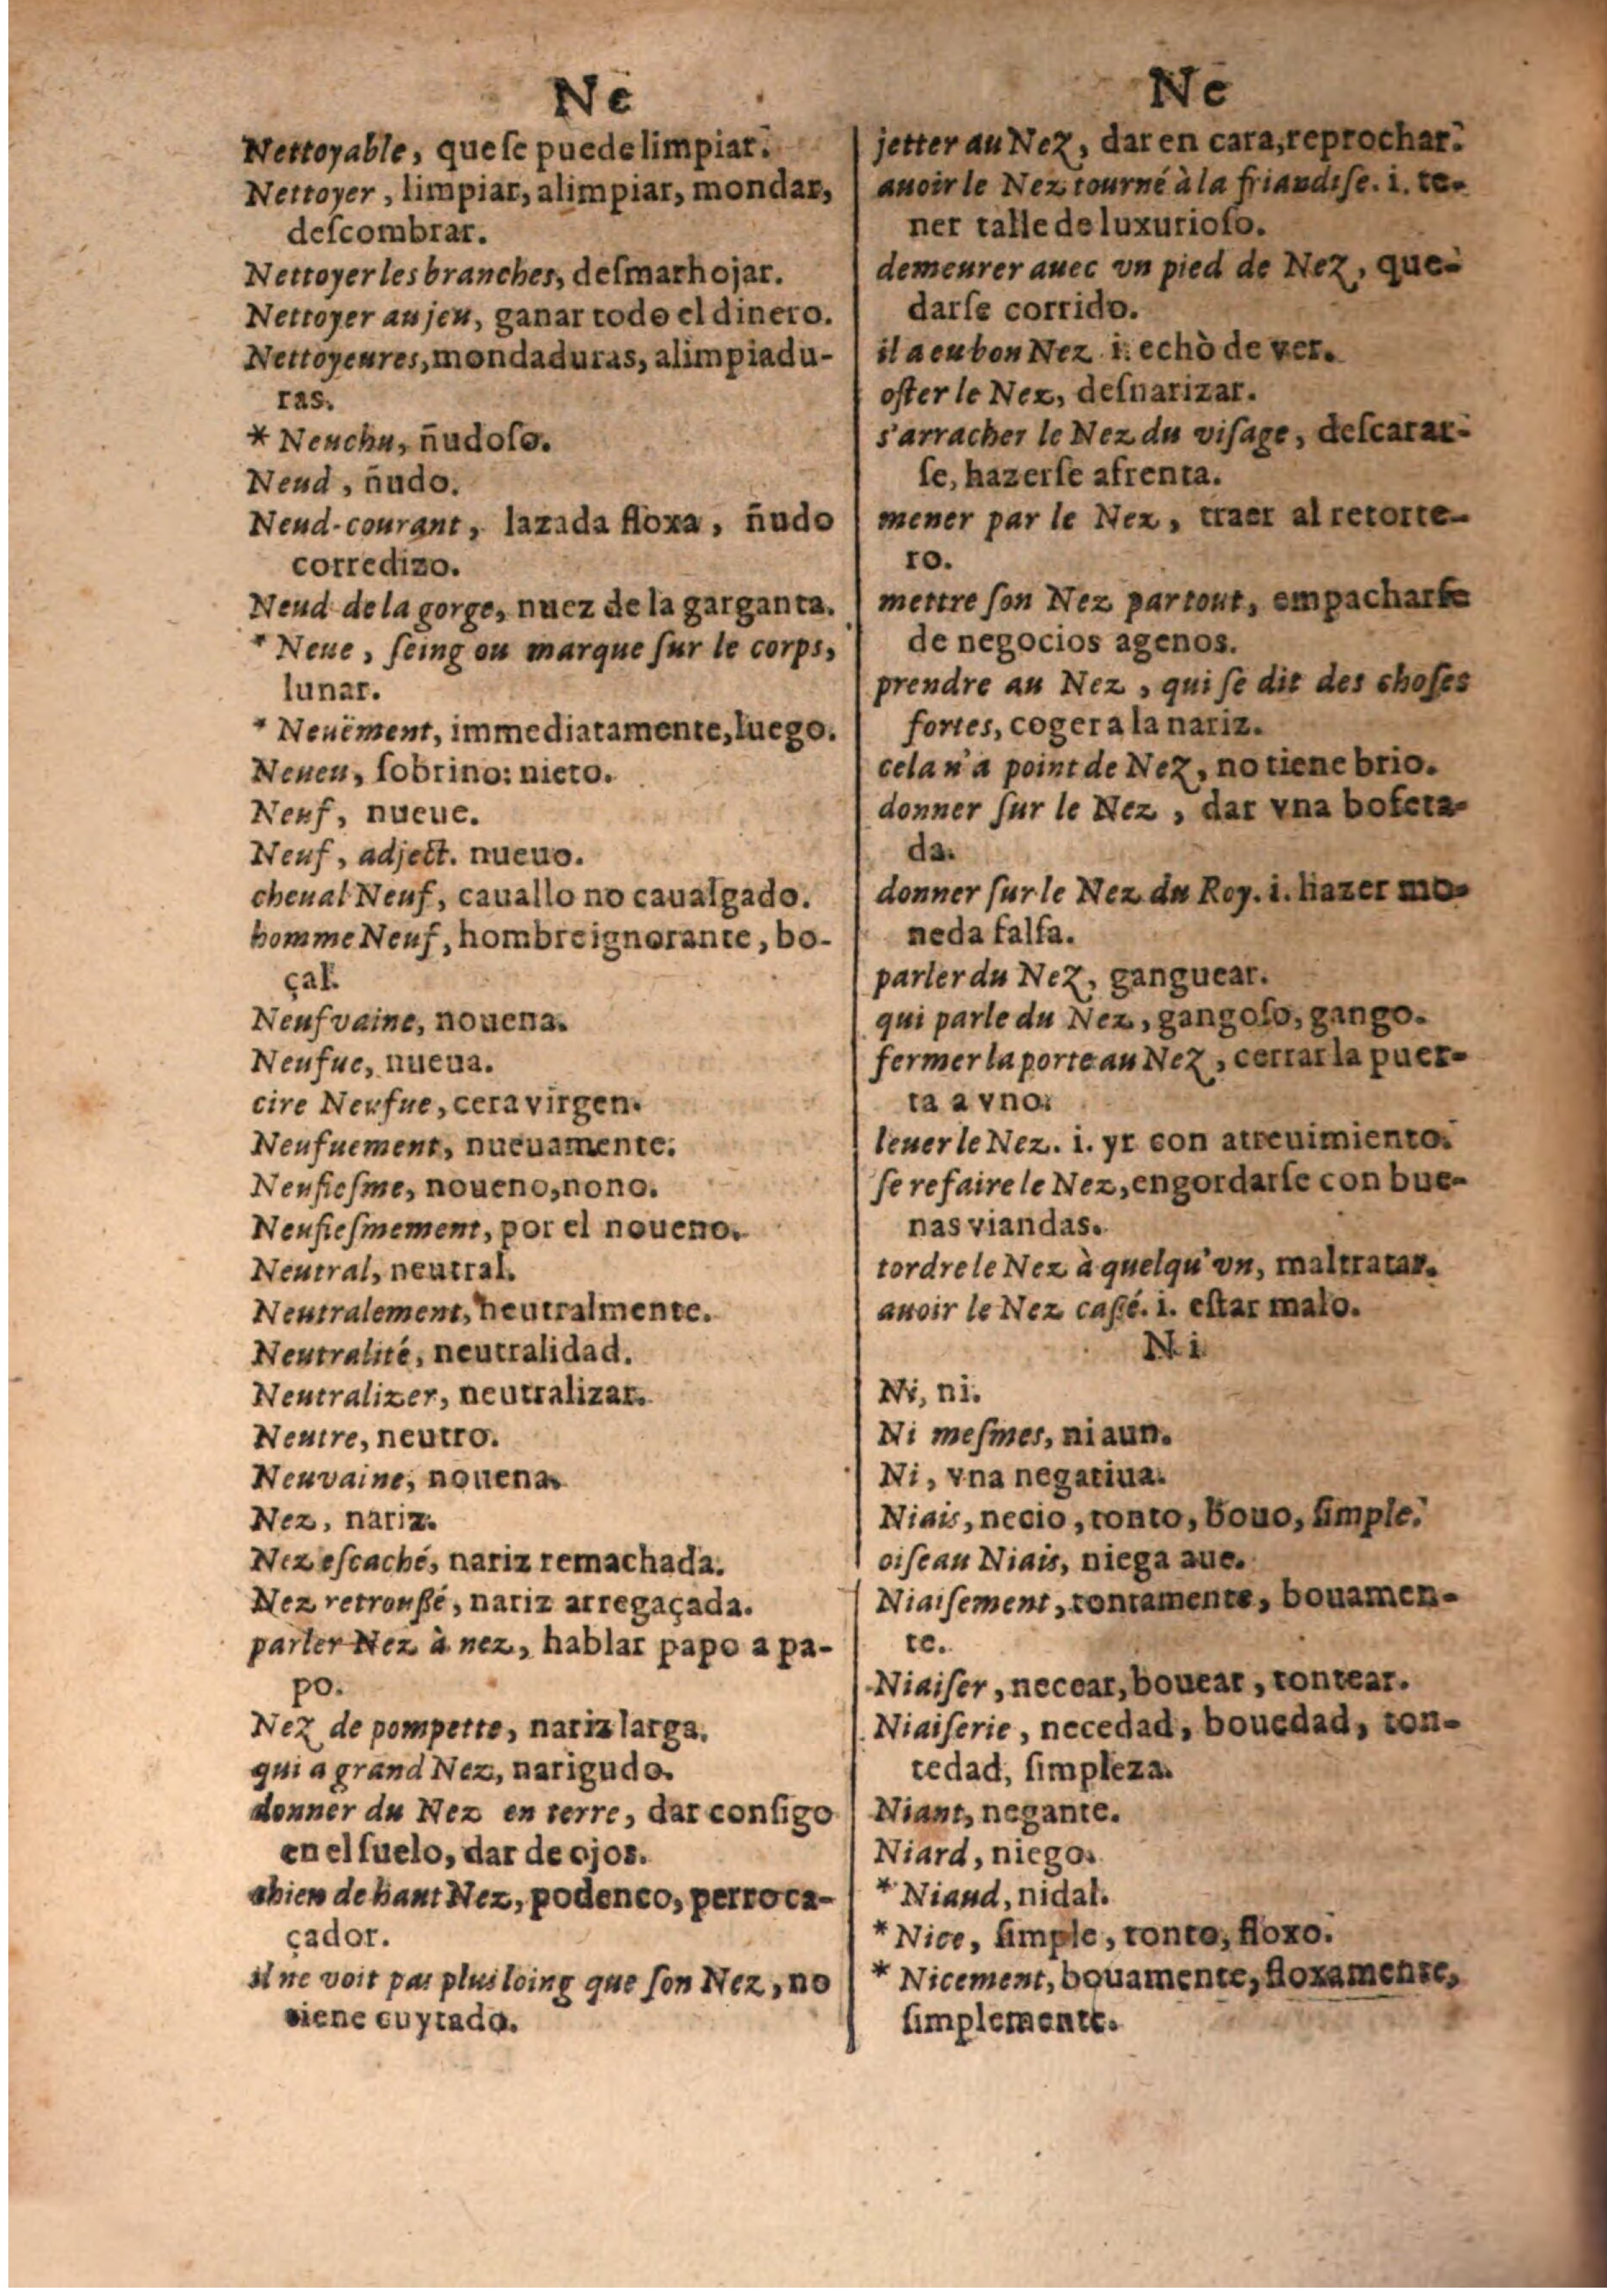 Ne
Nettoyable, que ſe puede limpiar.
Nettoyer, limpiar, alimpiar, mondar,
deſcombrar.
Nettoyer les branches, deſmarhojar.
Nettoyer au jeu, ganar todo el dinero.
Nettoyeures, mondaduras, alimpiadu-
ras.
* Neuchu, ñudoſo.
Neud, ñudo.
Neud-courant, lazada floxa, ñudo
corredizo.
Neud de la gorge, nuez de la garganta.
* Neue, ſeing ou marque ſur le corps,
lunar.
* Neuëment, immediatamente, luego.
Neueu, ſobrino: nieto.
Neuf, nueue.
Neuf, adject. nueuo.
cheual Neuf, cauallo no caualgado.
homme Neuf, hombre ignorante, bo-
çal.
Neufvaine, nouena.
Neufue, nueua.
cire Neufue, cera virgen.
Neufuement, nueuamente.
Neufieſme, noueno, nono.
Neufieſmement, por el noueno.
Neutral, neutral.
Neutralement, neutralmente.
Neutralité, neutralidad.
Neutralizer, neutralizar.
Neutre, neutro.
Neuvaine, nouena.
Nez, nariz.
Nez eſcaché, nariz remachada.
Nez retrouſſé, nariz arregaçada.
parler Nez à nez, hablar papo a pa-
po.
Nez de pompette, nariz larga.
qui a grand Nez, narigudo.
donner du Nez en terre, dar conſigo
en el ſuelo, dar de ojos.
chien de haut Nez, podenco, perro ca-
çador.
il ne voit pas plus loing que ſon Nez, no
tiene cuytado.
Ne
jetter au Nez, dar en cara, reprochar.
auoir le Nez tourné à la friandiſe. i. te-
ner talle de luxurioſo.
demeurer auec vn pied de Nez, que-
darſe corrido.
il a eu bon Nez. i. echò de ver.
oſter le Nez, deſnarizar.
s'arracher le Nez du viſage, deſcarar-
ſe, hazerſe afrenta.
mener par le Nez, traer al retorte-
ro.
mettre ſon Nez par tout, empacharſe
de negocios agenos.
prendre au Nez, qui ſe dit des choſes
fortes, coger a la nariz.
cela n'a point de Nez, no tiene brio.
donner ſur le Nez, dar vna bofeta-
da.
donner ſur le Nez du Roy. i. hazer mo-
neda falſa.
parler du Nez, ganguear.
qui parle du Nez, gangoſo, gango.
fermer la porte au Nez, cerrar la puer-
ta a vno.
leuer le Nez. i. yr con atreuimiento.
ſe refaire le Nez, engordarſe con bue-
nas viandas.
tordre le Nez à quelqu'vn, maltratar.
auoir le Nez caſſé. i. eſtar malo.
Ni
Ni, ni.
Ni meſmes, ni aun.
Ni, vna negatiua.
Niais, necio, tonto, bouo, ſimple.
oiſeau Niais, niega aue.
Niaiſement, tontamente, bouamen-
te.
Niaiſer, necear, bouear, tontear.
Niaiſerie, necedad, bouedad, ton-
tedad, ſimpleza.
Niant, negante.
Niard, niego.
* Niaud, nidal.
* Nice, ſimple, tonto, floxo.
* Nicement, bouamente, floxamente,
ſimplemente.